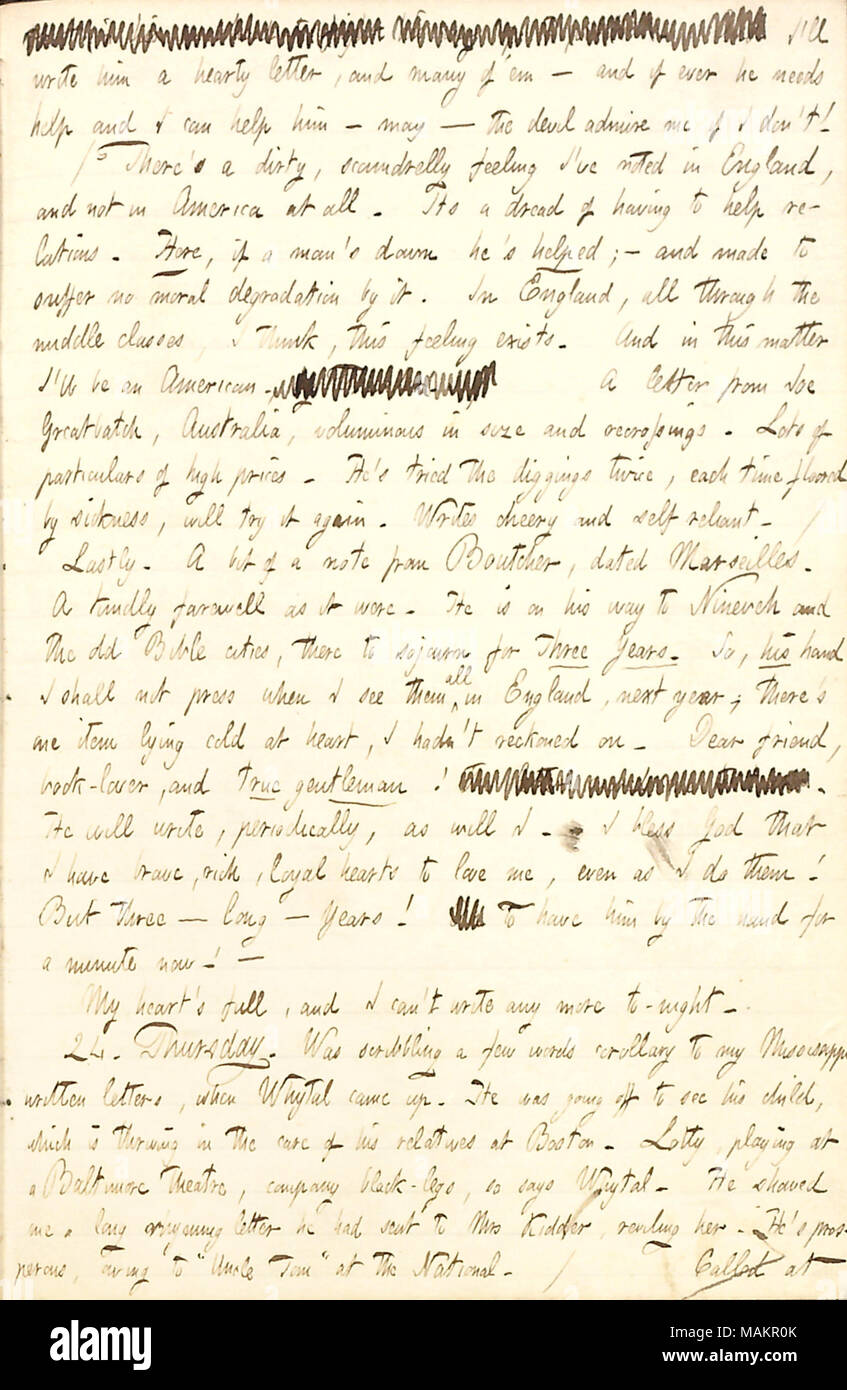 I'll
write him a hearty letter, and many of 'em — and if ever he needs
help and I can help him — may — the devil admire me if I don't!
/ There's a dirty, scoundrelly feeling I've noted in England,
and not in America at all. Its a dread of having to help re-
lations. Here, if a man's down he's helped; — and made to
suffer no moral degradation by it. In England, all through the
middle classes, I think, this feeling exists. And in this matter
I'll be an American. A letter from Joe
Greatbatch, Australia, voluminous in size and recrossings. Lots of
particulars of high prices. He's tried the diggings twice, each time floored
by sickness, will try it again. Writes cheery and self reliant. /
Lastly. A bit of a note from Boutcher, dated Marseilles.
A kindly farewell as it were. He is on his way to Nineveh and
the old Bible cities, there to sojourn for Three Years. So, his hand
I shall not press when I see them all in England, next year; there's
one item lying cold at heart, I hadn't reckoned on. Dear friend,
book-lover, and true gentleman! .
He will write, periodically, as will I. I bless God that
I have brave, rich, loyal hearts to love me, even as I do them!
But three — long — Years! To have him by the hand for
a minute now! —
My heart's full, and I can't write any more to-night.
24. Thursday. Was scribbling a few words corollary to my Mississippi
written letters, when Whytal came up. He was going off to see his child,
which is thriving in the care of his relatives at Boston. Lotty, playing at
a Baltimore Theatre, company black-legs, so says Whytal. He showed
me a long rhyming letter he had sent to Mrs Kidder, reviling her. He's pros-
perous, owing to "Uncle Tom" at the National. / Called at
alamy
Image ID: MAKR0K
www.alamy.com